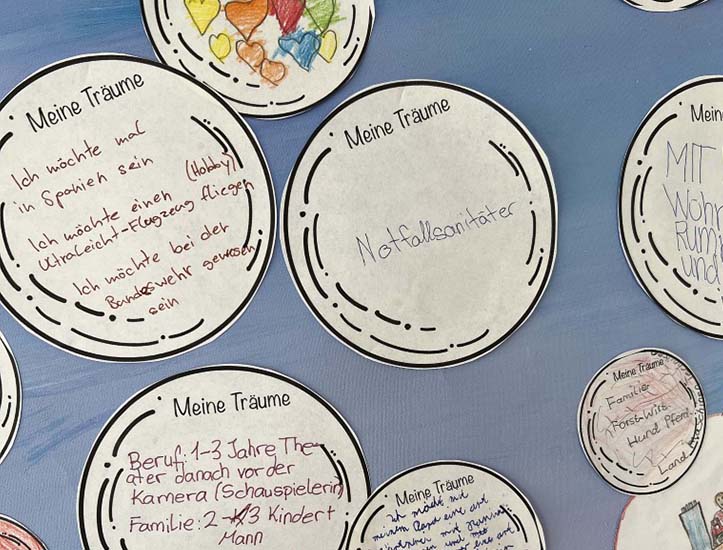 Meine Träume
Ich möchte mal
in Spanien sein
(Hobby)
Ich möchte einen
Ultraleicht-Flugzeug fliegen
Ich möchte bei der
Bundeswehr gewesen
sein
Meine Träume
Notfallsanitäter
Mein
MIT
Wohn
Rum
und
Meine Träume
Beruf: 1-3 Jahre The-
ater danach vor der
Kamera (Schauspielerin)
Familie: 2-3 Kinder+
Mann
Meine Träume
ich möcht mit
meinem Band eine art
mit
Meine Träume
Familie
Forst-Wirt
Hund Pferd
Land